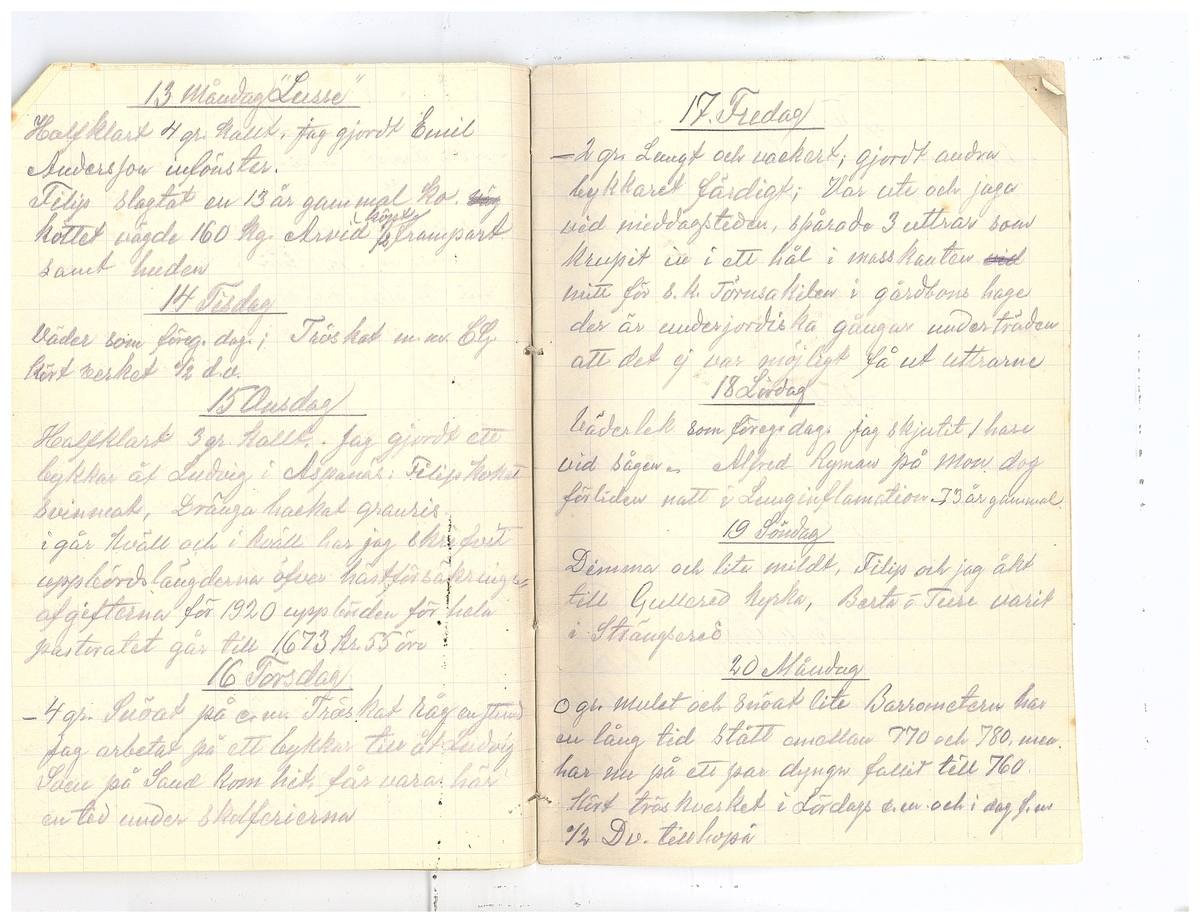 13 Måndag "Lusse"
Halfklart 4 gr. kallt. jag gjordt Emil
Andersson infönster.
Filip slagtat en 13 år gammal ko.
köttet vägde 160 kg. Arvid köpt frampart
samt huden
14 Tisdag
Väder som föreg. dag.; Tröskat m.m.
kört verket 1/2 d.v.
15 Onsdag
Halfklart 3 gr. kallt. Jag gjordt ett
bykkar åt Ludvig i Aspanäs: Filip kokat
svinmat, Dränga hackat granris
i går kväll och i kväll har jag skrifvit
uppbördslängderna öfver hästförsäkrings
afgifterna för 1920 uppbörden för hela
pastoratet går till 1673 kr. 55 öre
16 Torsdag
– 4 gr. Snöat på e.m. Tröskat råg en stund
Jag arbetat på ett bykkar till åt Ludvig
Sven på Sand kom hit, får vara här
en tid under skolferierna
17. Fredag
– 2 gr. Lungt och vackert; gjordt andra
bykkaret färdigt; Var ute och jaga
vid middagstiden, spårade 3 uttrar som
krupit in i ett hål i mosskanten vid
mitt för s.k. Törnsakilen i gårdbons hage
der är underjordiska gångar under träden
att det ej var möjligt få ut uttrarne
18 Lördag
Väderlek som föreg. dag. jag skjutit 1 hare
vid sågen. Alfred Ryman på Mon. dog
förliden natt i Lunginflamation 73 år gammal.
19 Söndag
Dimma och lite mildt, Filip och jag åkt
till Gullered kyrka, Berta o Ture varit
i Strängsered
20 Måndag
0 gr. mulet och snöat lite Barrometern har
en lång tid stått emellan 770 och 780, men
har nu på ett par dyngn fallit till 760.
Kört tröskverket i Lördags e.m. och i dag f.m
1/2 Dv. tillhopa